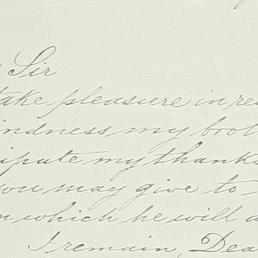 Sir
take pleasure in re
kindness my brot
cipate my thanks
you may give to
which he will a
I remain, Dea